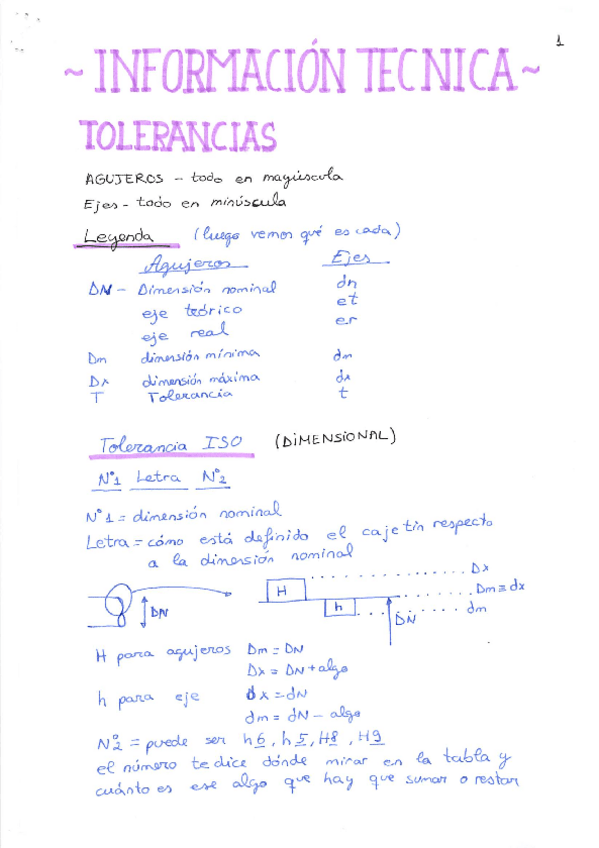 1
~ INFORMACIÓN TECNICA ~
TOLERANCIAS
AGUJEROS - todo en mayúscula
Ejes - todo en minúscula
Leyenda (luego vemos qué es cada)
Agujeros Ejes
DN - Dimensión nominal dn
eje teórico et
eje real er
Dm dimensión mínima dm
Dx dimensión máxima dx
T Tolerancia t
Tolerancia ISO (DIMENSIONAL)
Nº1 Letra Nº2
Nº1 = dimensión nominal
Letra = cómo está definido el cajetín respecto
a la dimensión nominal
Dx
H Dm ≡ dx
h dm
DN DN
H para agujeros Dm = DN
Dx = DN + algo
h para eje dx = dN
dm = dN - algo
Nº2 = puede ser h6, h5, H8, H9
el número te dice dónde mirar en la tabla y
cuánto es ese algo que hay que sumar o restar